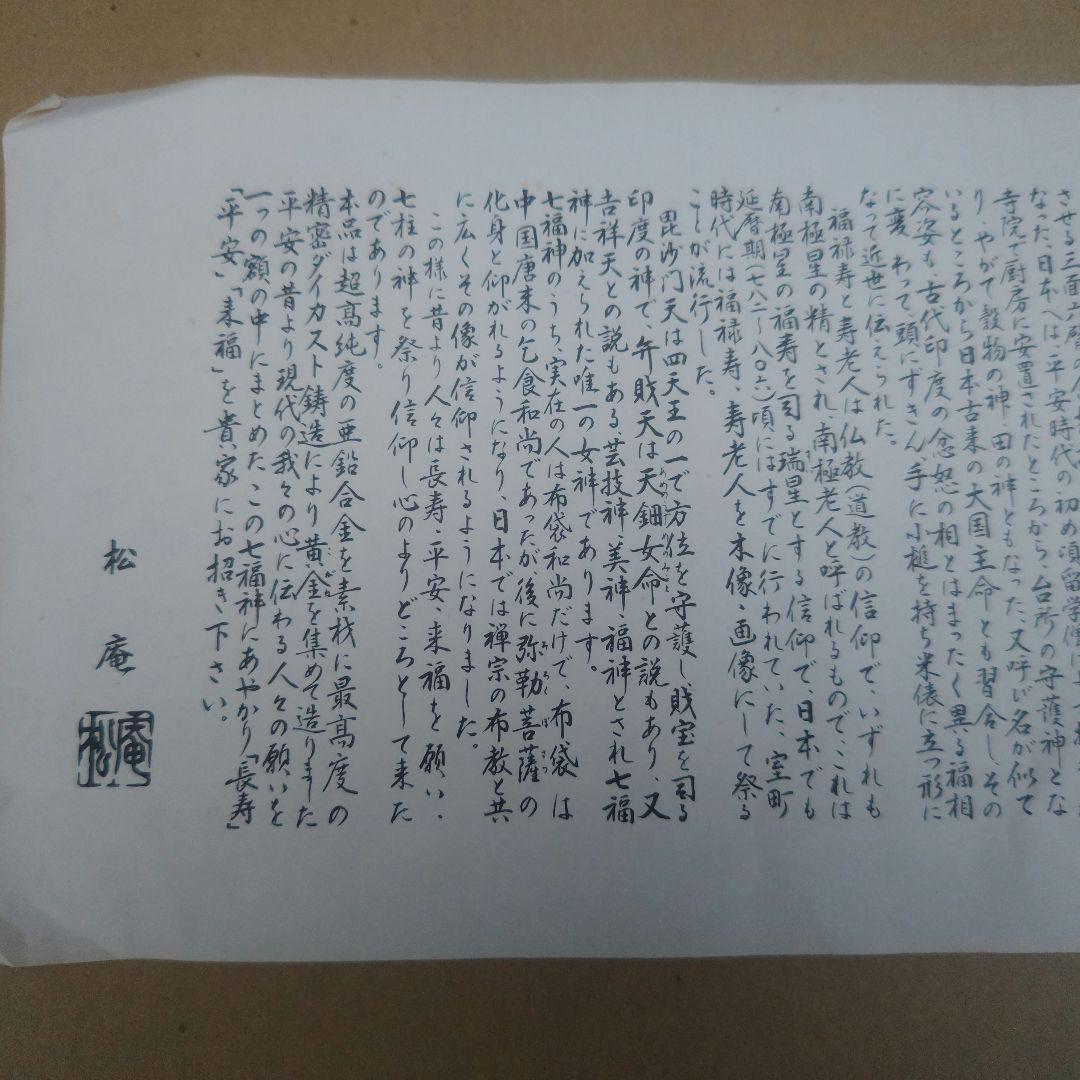 させる三面
なった、日本へは平安時代の初め頃留学僧に
寺院で厨房に安置されたところから、台所の守護神とな
り、やがて穀物の神・田の神ともなった、又呼び名が似て
いるところから日本古来の大国主命とも習合し、その
容姿も、古代印度の念怒の相とはまったく異る福相
に変わって、頭にずきん手に小槌を持ち米俵に立つ形に
なって近世に伝えられた。
福禄寿と寿老人は仏教(道教)の信仰で、いずれも
南極星の精とされ、南極老人と呼ばれるもので、これは
南極星の福寿を司る瑞星とする信仰で、日本でも
延暦期(七八二〜八〇六)頃にはすでに行われていた、室町
時代には福禄寿、寿老人を木像・画像にして祭る
ことが流行した。
毘沙門天は四天王の一で方位を守護し、財宝を司る
印度の神で、弁財天は天鈿女命との説もあり、又
吉祥天との説もある、芸技神・美神・福神とされ七福
神に加えられた唯一の女神であります。
七福神のうち、実在の人は布袋和尚だけで、布袋は
中国唐末の乞食和尚であったが後に弥勒菩薩の
化身と仰がれるようになり、日本では禅宗の布教と共
に広くその像が信仰されるようになりました。
この様に昔より人々は長寿・平安・来福を願い、
七柱の神を祭り信仰し心のよりどころとして来た
のであります。
本品は超高純度の亜鉛合金を素材に最高度の
精密ダイカスト鋳造により黄金を集めて造りました
平安の昔より現代の我々の心に伝わる人々の願いを
一つの額の中にまとめた、この七福神にあやかり「長寿」
「平安」「来福」を貴家にお招き下さい。
松庵
松庵